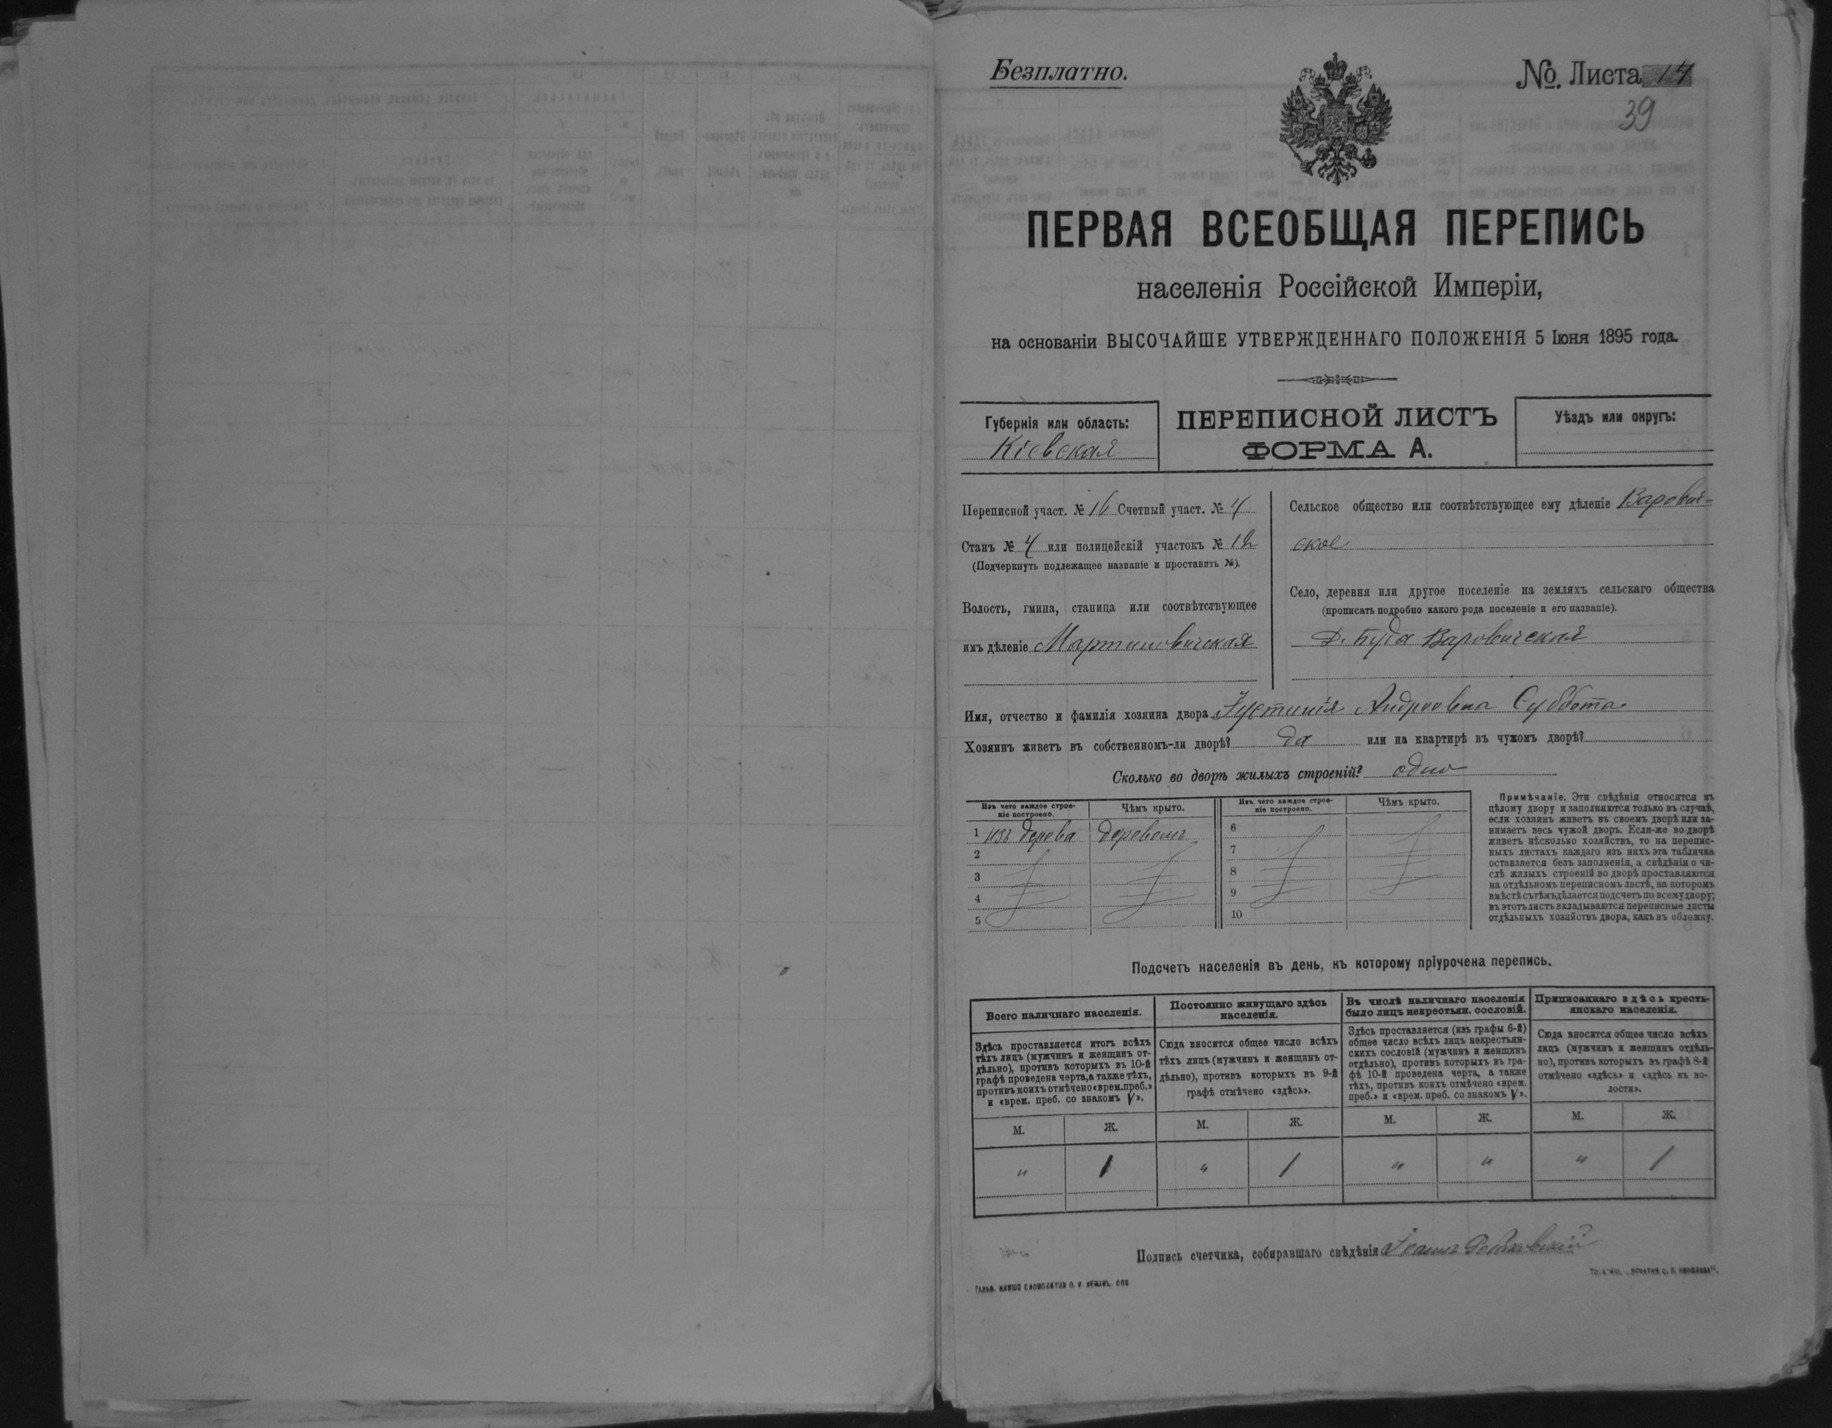 Безплатно.
№. Листа 17
39
ПЕРВАЯ ВСЕОБЩАЯ ПЕРЕПИСЬ
населенія Россійской Имперіи,
на основаніи ВЫСОЧАЙШЕ УТВЕРЖДЕННАГО ПОЛОЖЕНІЯ 5 Іюня 1895 года.
Губернія или область:
Кіевская
ПЕРЕПИСНОЙ ЛИСТЪ
ФОРМА А.
Уѣздъ или округъ:
Переписной участ. № 16 Счетный участ. № 4
Станъ № 4 или полицейскій участокъ № 12
(Подчеркнуть подлежащее названіе и проставить №).
Волость, гмина, станица или соотвѣтствующее
имъ дѣленіе Мартиновичская
Сельское общество или соотвѣтствующее ему дѣленіе Варович-
ское
Село, деревня или другое поселеніе на земляхъ сельскаго общества
(прописать подробно какого рода поселеніе и его названіе).
Д. Буда Варовичская
Имя, отчество и фамилія хозяина двора Іустинія Андреевна Суббота
Хозяинъ живетъ въ собственномъ-ли дворѣ? да или на квартирѣ въ чужомъ дворѣ?
Сколько во дворѣ жилыхъ строеній? одно
Изъ чего каждое строе-
ніе построено.
Чѣмъ крыто.
Изъ чего каждое строе-
ніе построено.
Чѣмъ крыто.
1 изъ дерева деревомъ
2
3
4
5
6
7
8
9
10
Примѣчаніе. Эти свѣдѣнія относятся къ
цѣлому двору и заполняются только въ случаѣ,
если хозяинъ живетъ въ своемъ дворѣ или за-
нимаетъ весь чужой дворъ. Если-же во дворѣ
живетъ нѣсколько хозяйствъ, то на перепис-
ныхъ листахъ каждаго изъ нихъ эта табличка
оставляется безъ заполненія, а свѣдѣнія о чи-
слѣ жилыхъ строеній во дворѣ проставляются
на отдѣльномъ переписномъ листѣ, на которомъ
вмѣстѣ съ тѣмъ дѣлается подсчетъ по всему двору;
въ этотъ листъ вкладываются переписные листы
отдѣльныхъ хозяйствъ двора, какъ въ обложку.
Подсчетъ населенія въ день, къ которому пріурочена перепись.
Всего наличнаго населенія.
Здѣсь проставляется итогъ всѣхъ
тѣхъ лицъ (мужчинъ и женщинъ от-
дѣльно), противъ которыхъ въ 10-й
графѣ проведена черта, а также тѣхъ,
противъ коихъ отмѣчено «врем. преб.»
и «врем. преб. со знакомъ V».
Постоянно живущаго здѣсь
населенія.
Сюда вносится общее число всѣхъ
тѣхъ лицъ (мужчинъ и женщинъ от-
дѣльно), противъ которыхъ въ 9-й
графѣ отмѣчено «здѣсь».
Въ числѣ наличнаго населенія
было лицъ некрестьян. сословій.
Здѣсь проставляется (изъ графы 6-й)
общее число всѣхъ лицъ некрестьян-
скихъ сословій (мужчинъ и женщинъ
отдѣльно), противъ которыхъ въ гра-
фѣ 10-й проведена черта, а также
тѣхъ, противъ коихъ отмѣчено «врем.
преб.» и «врем. преб. со знакомъ V».
Приписаннаго здѣсь кресть-
янскаго населенія.
Сюда вносится общее число всѣхъ
лицъ (мужчинъ и женщинъ отдѣль-
но), противъ которыхъ въ графѣ 8-й
отмѣчено «здѣсь» и «здѣсь къ во-
лости».
М. Ж. М. Ж. М. Ж. М. Ж.
" 1 " 1 " " " 1
Подпись счетчика, собиравшаго свѣдѣнія Іоаннъ